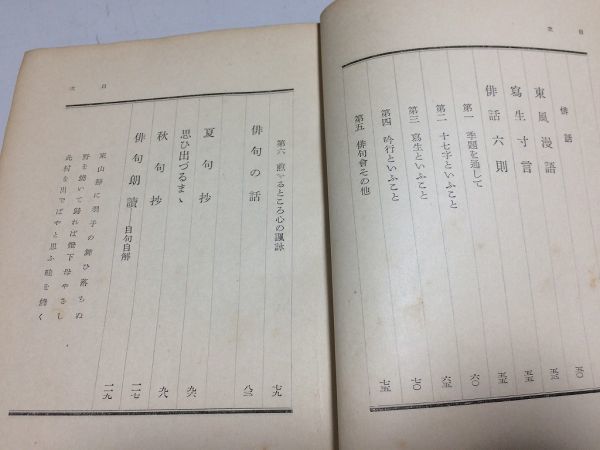 目次
俳話 五〇
東風漫語 五三
寫生寸言 五五
俳話六則 五五
第一 季題を通して 六〇
第二 十七字といふこと 六五
第三 寫生といふこと 七〇
第四 吟行といふこと 七五
第五 俳句會その他
目次
第六 煎ずるところ心の諷詠 七九
俳句の話 八三
夏句抄
思ひ出づるまゝ 九六
秋句抄 九八
俳句朗讀 自句自解 一一七
東山靜に羽子の舞ひ落ちぬ 一一九
野を燒いて歸れば燈下母やさし
此村を出でばやと思ふ畦を燒く